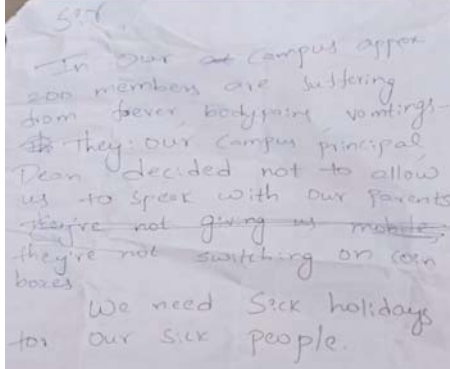 Sir,
In our campus appox
200 members are suffering
from fever, bodypains, vomtings.
They: our campus principal,
Dean decided not to allow
us to speak with our parents
they're not giving us mobile,
they're not switching on coin
boxes
We need Sick holidays
for our sick people.